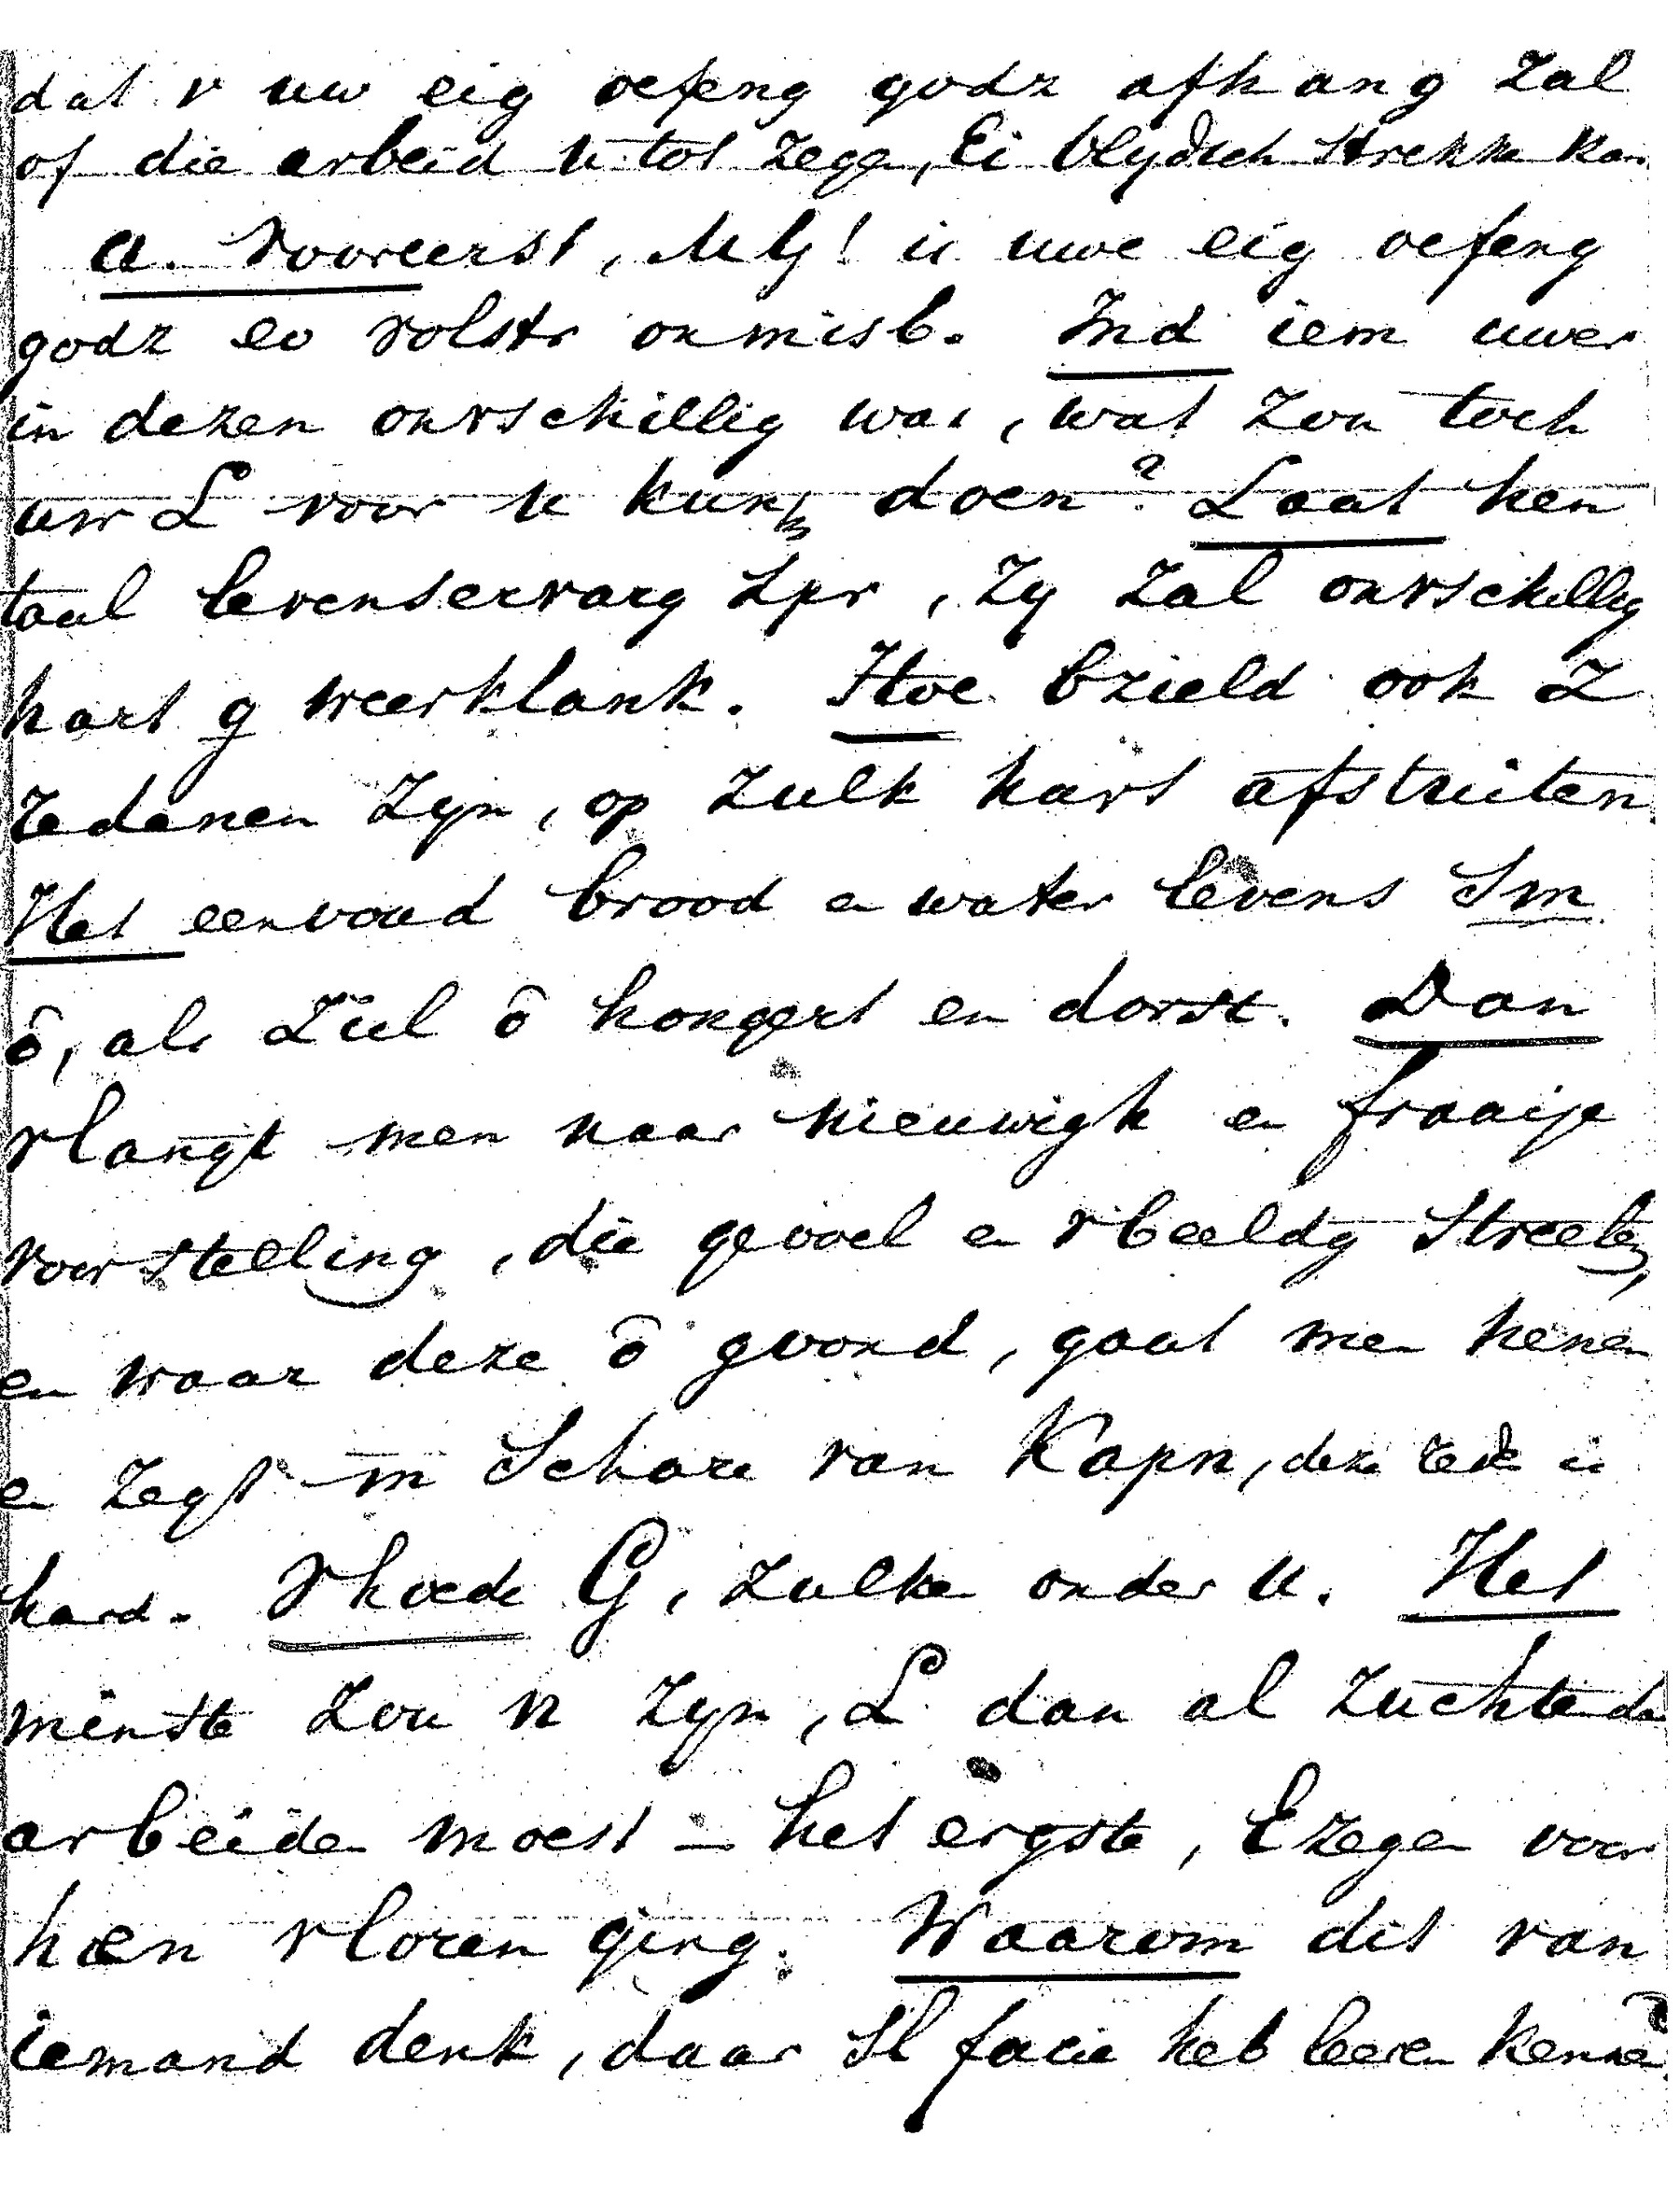 dat v uw eig oefeng godz afhang zal
of die arbeid u tot zege, Ei blydsch strekke kan
a. Vooreerst, MG! is uwe eig oefeng
godz eo volstr onmisb. Ind iem uwer
in dezen onvschillig was, wat zou toch
uw L voor u kunn doen? Laat hem
taal levenservarg spr, zy zal onvschillig
hart g weerklank. Hoe bzield ook Z
redenen zyn, op zulk hart afstuiten
Het eenvoud brood en water levens Sm
ô, als Ziel ô hongert en dorst. Dan
vlangt men naar nieuwigh en fraaije
voorstelling, die gevoel en vbeeldg streelen,
en waar deze ô gvond, gaat men henen
en zegt m Schare van Kapn, deze rede is
hard. Vhoede G, zulke onder u. Het
minste zou n zyn, L dan al zuchtende
arbeiden moest - het ergste, E zegen voor
hen vloren ging. Waarom dit van
iemand denk, daar Sl facie heb leeren kennen?